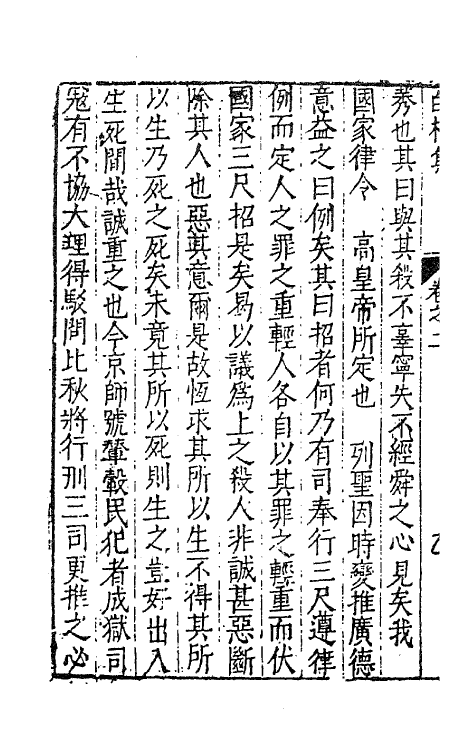 卷之二
莠也其曰與其殺不辜寧失不經舜之心見矣我
國家律令 高皇帝所定也 列聖因時變推廣德
意益之曰例矣其曰招者何乃有司奉行三尺遵律
例而定人之罪之重輕人各自以其罪之輕重而伏
國家三尺招是矣曷以議爲上之殺人非誠甚惡斷
除其人也惡其意爾是故恆求其所以生不得其所
以生乃死之死矣未竟其所以死則生之豈好出入
生死間哉誠重之也今京師號輦轂民犯者成獄司
寇有不協大理得駁問比秋將行刑三司更推之必